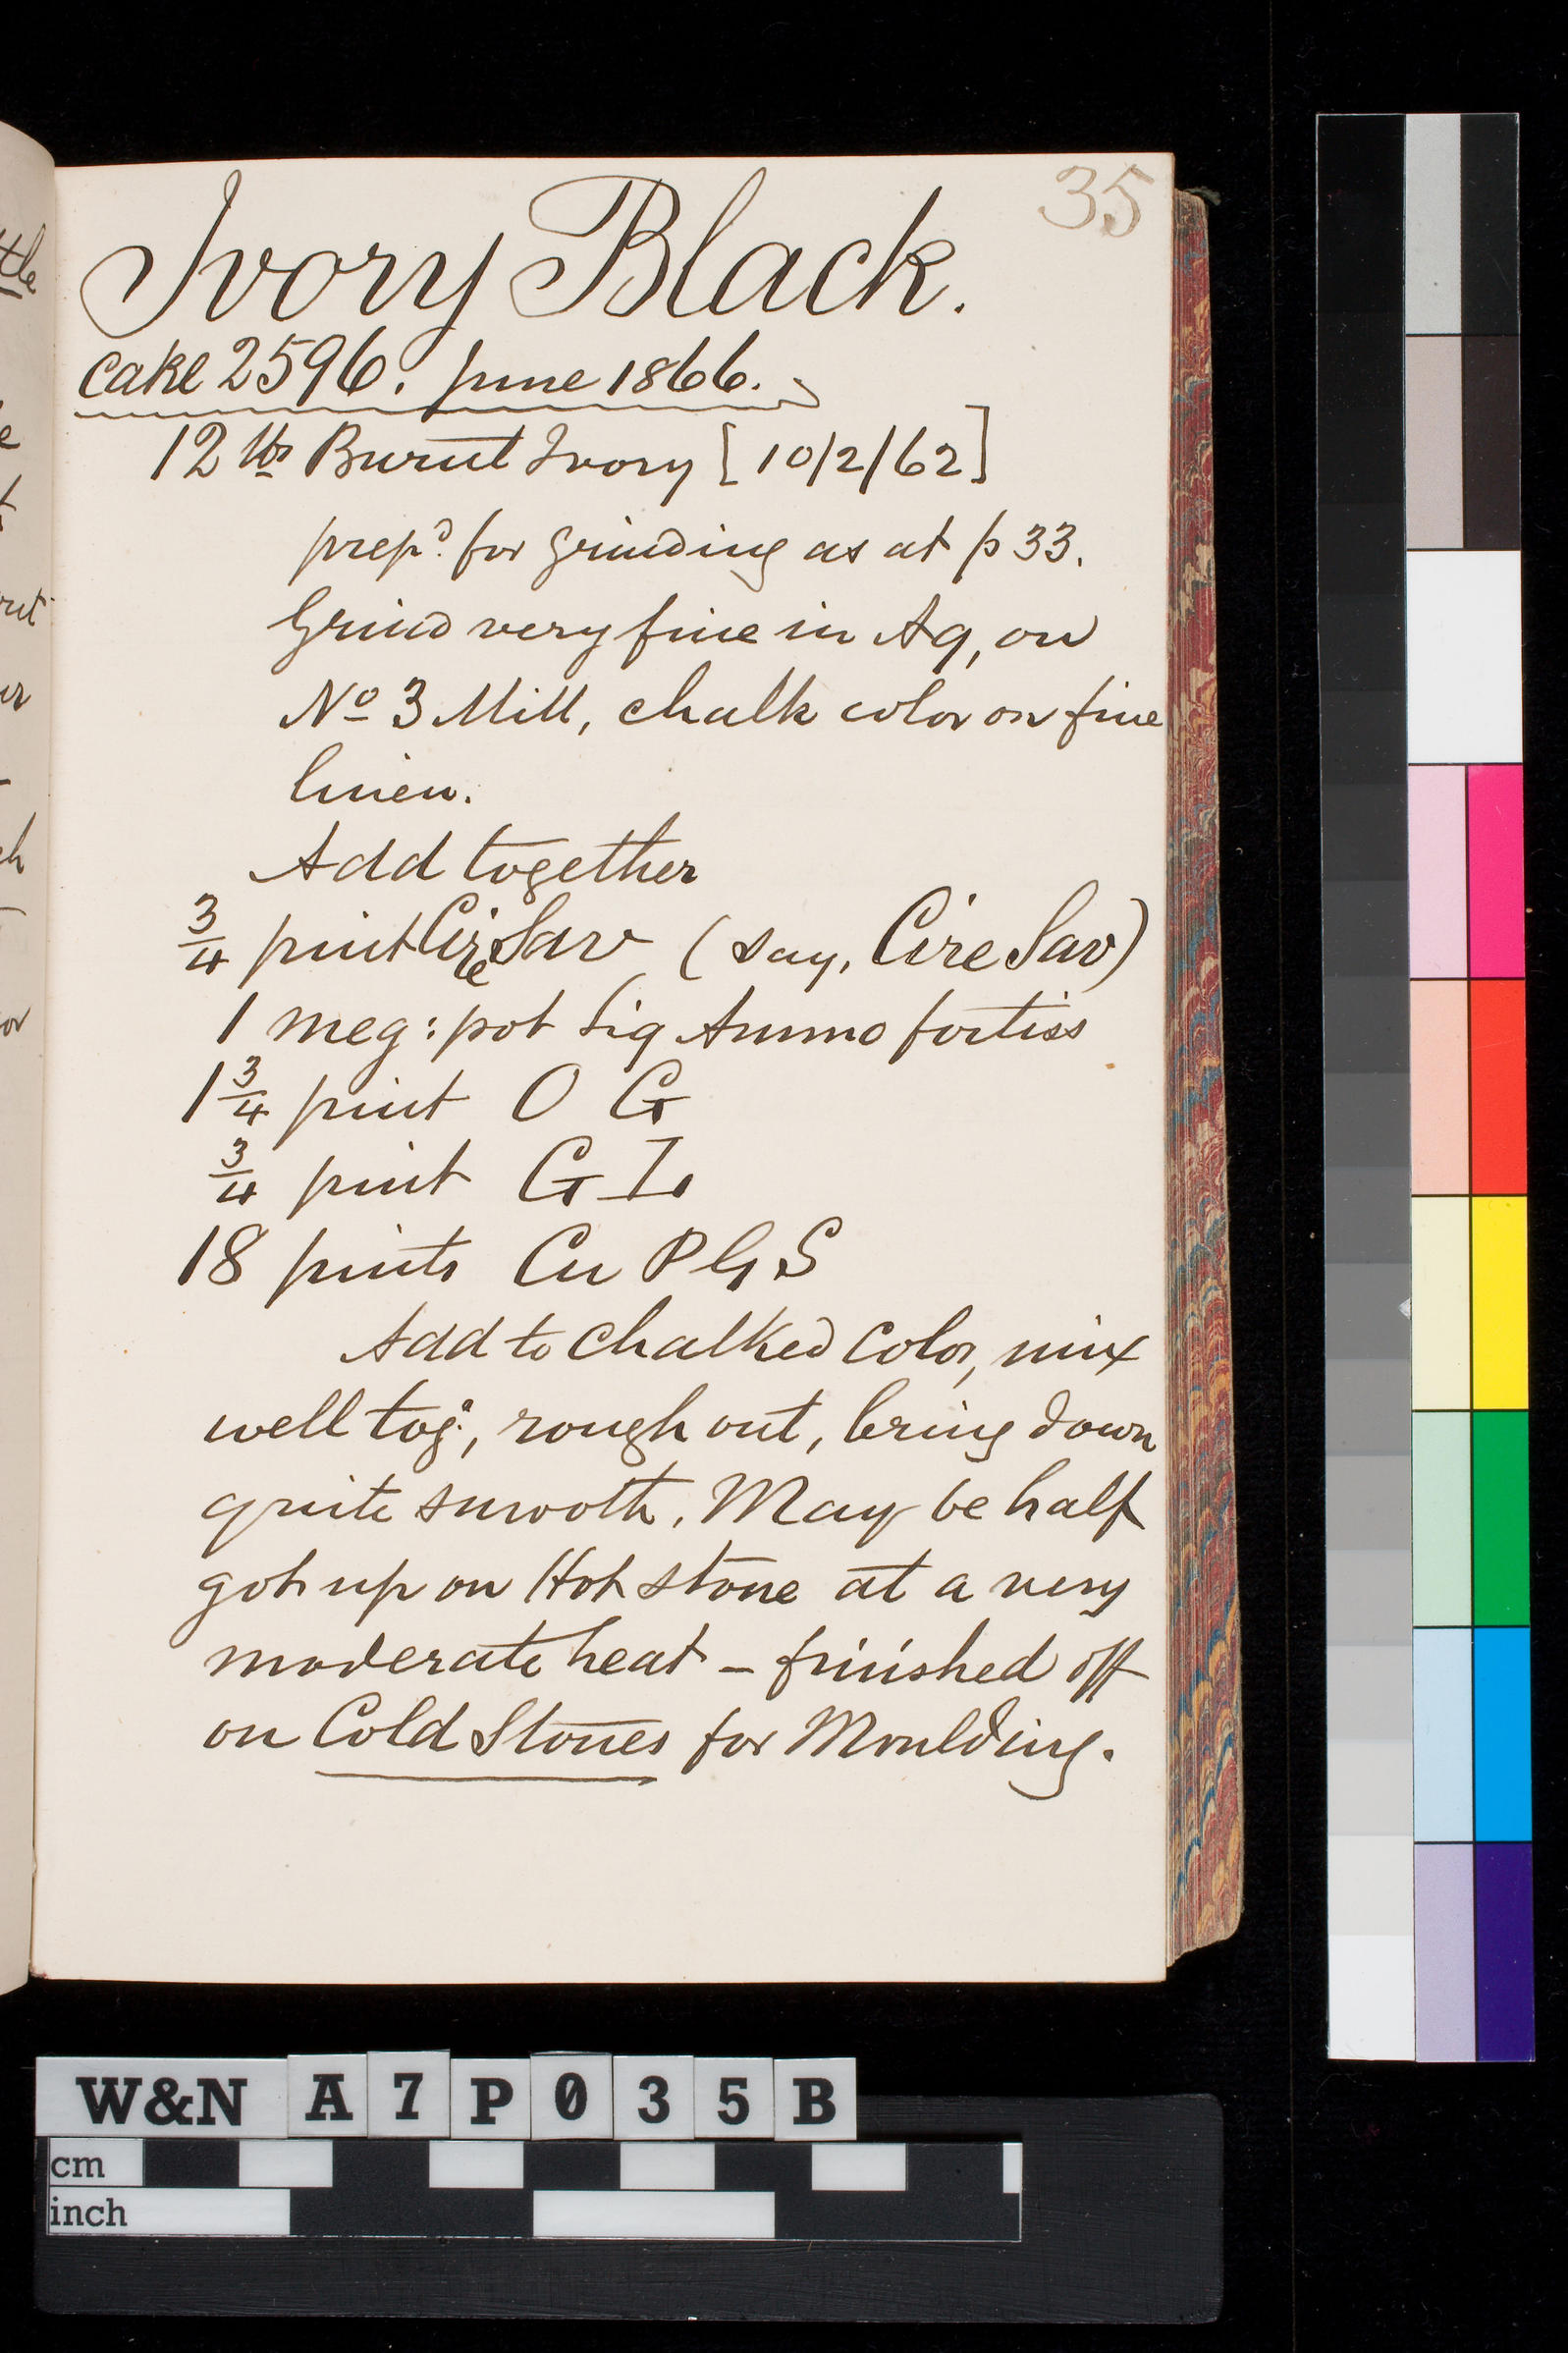 35
Ivory Black.
Cake 2596. June 1866.
12 lbs Burnt Ivory [10/2/62]
prepd. for grinding as at p 33.
Grind very fine in Aq, on
No 3 Mill, chalk color on fine
linen.
Add together
3/4 pint Cire Sav (say, Cire Sav)
1 meg: pot Liq Ammo fortiss
1 3/4 pint O G
3/4 pint G I
18 pints Cu P G S
Add to Chalked Color, mix
well tog:, rough out, bring down
quite smooth. May be half
got up on Hot stone at a very
moderate heat - finished off
on Cold Stones for Moulding.
W&N A 7 P 0 3 5 B
cm
inch